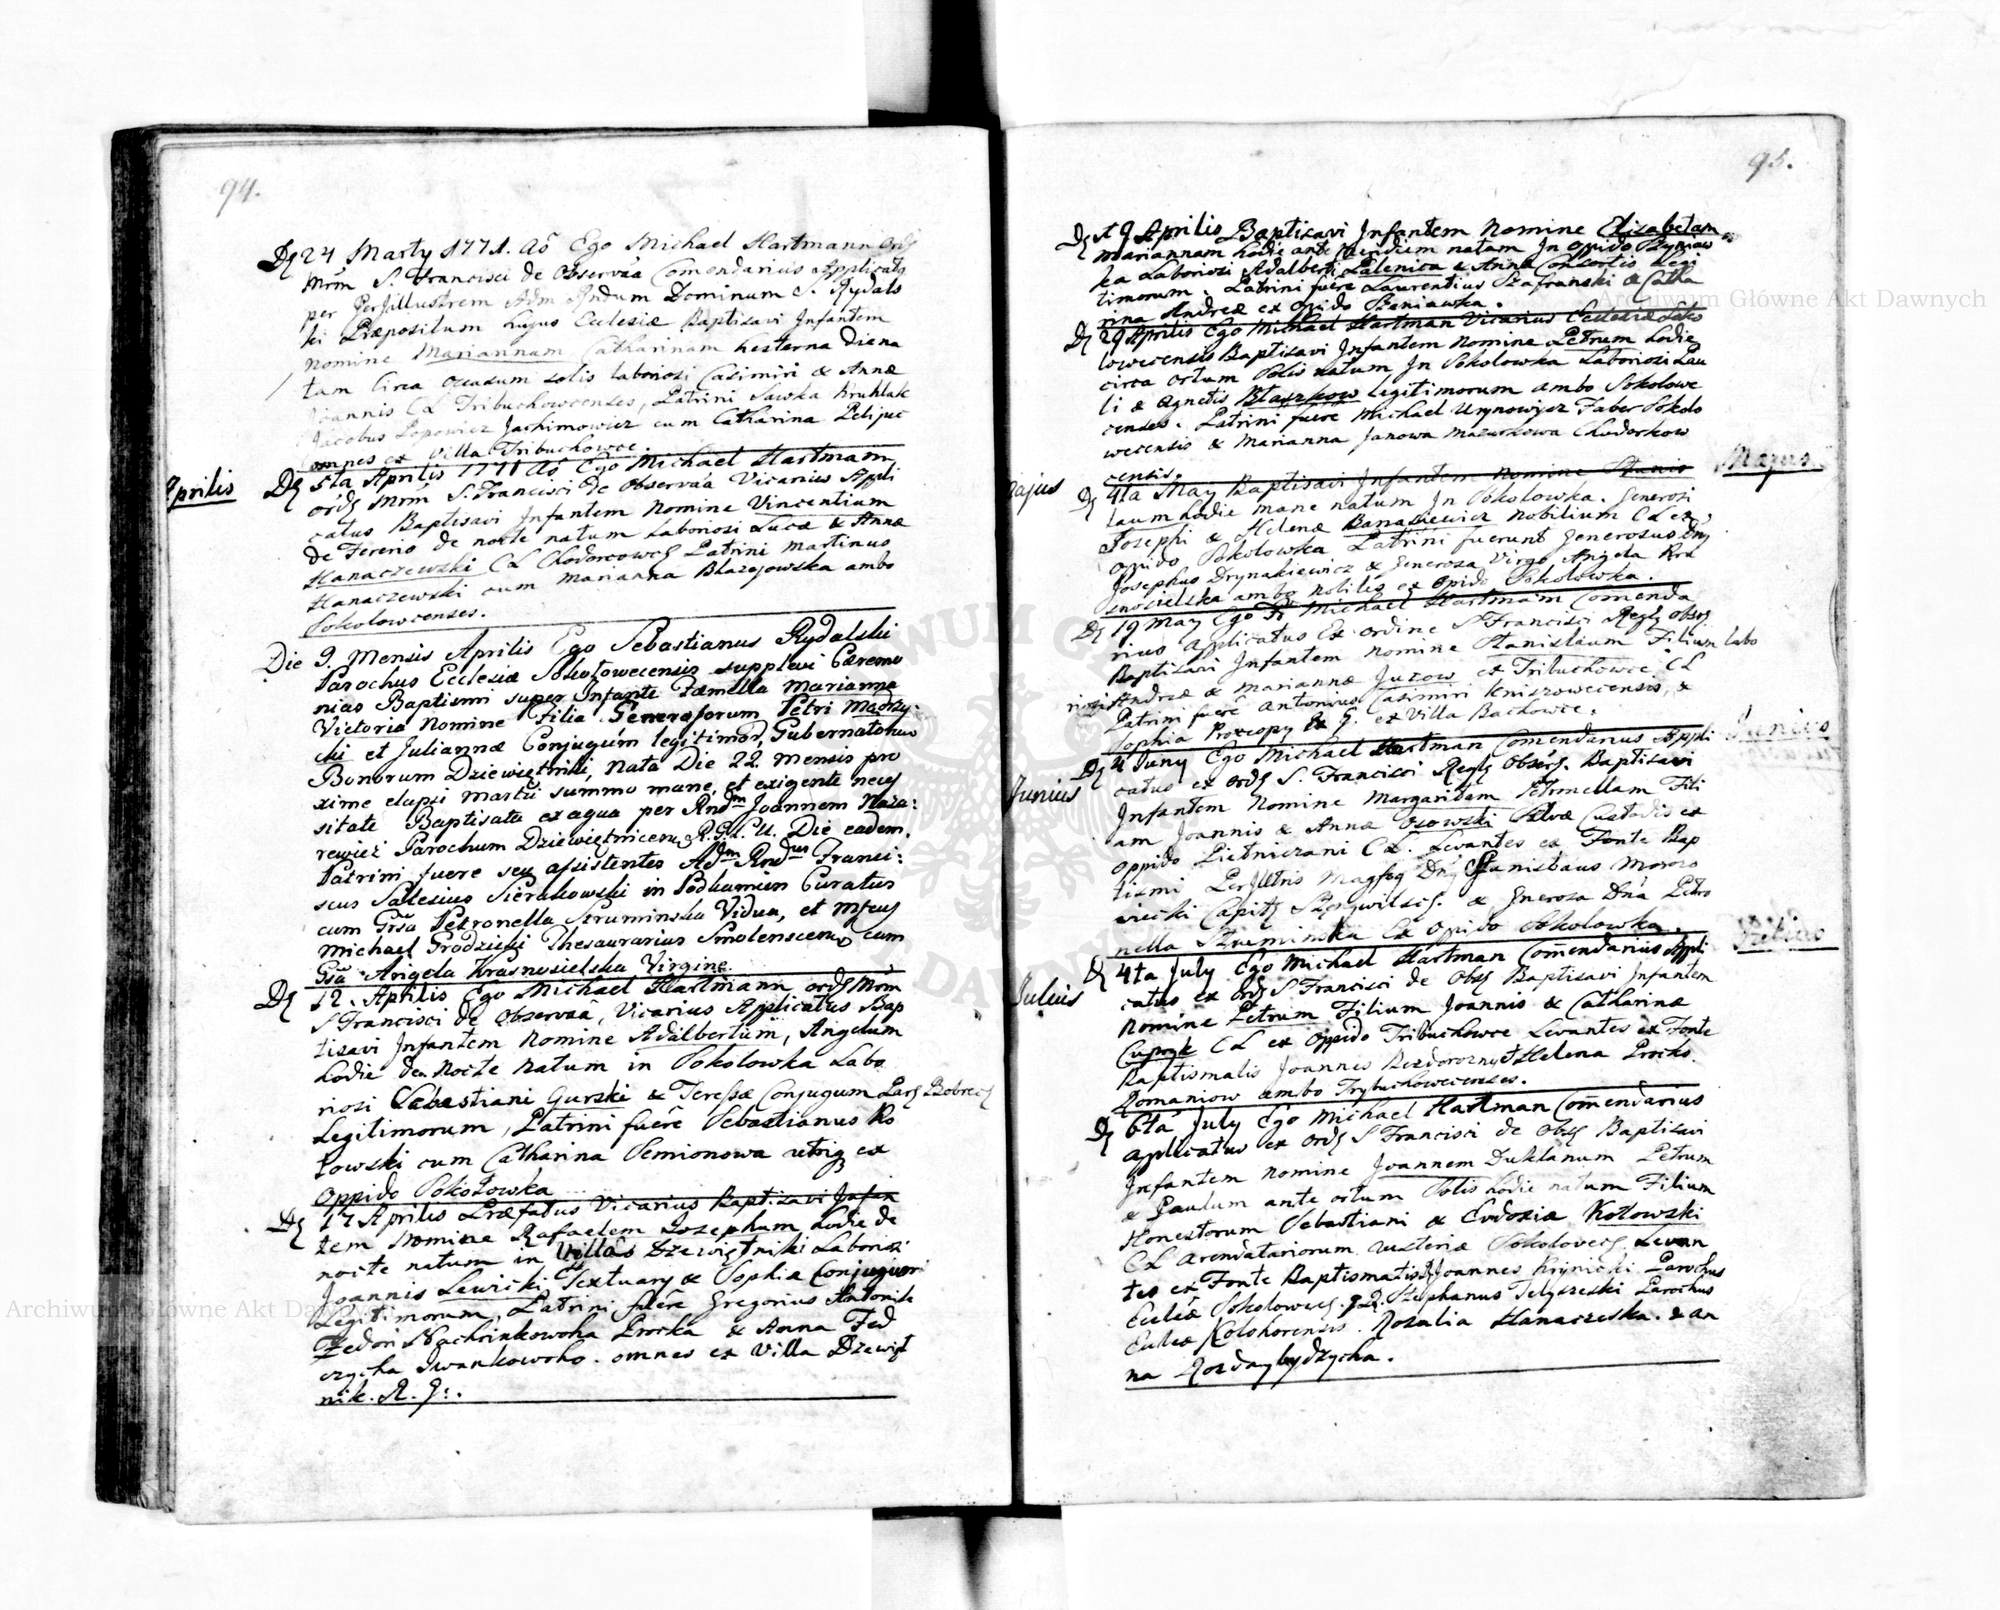 94.
Dg 24 Marty 1771. Aõ Ego Michael Hartmann Ordg
Mrm S. Francisci de Observãa Comendarius Applicatg
per PerJllustrem Adm Rndum Dominum S. Rydals
ki Præpositum hujus Ecclesiæ Baptisavi Infantem
nomine Mariannam Catharinam hesterna die na
tam Circa occasum solis laboriosi Casimiri & Annæ
Joannis CL Tribuchowcenses, Patrini Sawka Kruhlak
Jacobus Popowicz Jachimowicz cum Catharina Pelipec
omnes ex villa Tribuchowce.
Aprilis
Dg 5ta Aprilis 1771 Aõ Ego Michael Hartmann
ordg Mrm S. Francisci de Observãa Vicarius Appli
catus Baptisavi Infantem Nomine Vincentium
de Fererio de nocte natum Laboriosi Lucæ & Annæ
Hanaczewski CL Chodorcowcg Patrini Martinus
Hanaczewski cum Marianna Blazejowska ambo
Sokolowcenses.
Die 9. Mensis Aprilis Ego Sebastianus Rydalski
Parochus Ecclesiæ Sokołowecensis supplevi Cæremo
nias Baptismi super Infante Fæmella Marianna
Victoria Nomine Filia Generosorum Petri Madey:
ski et Juliannæ Conjugúm legitimor, Gubernatorum
Bonorum Dziewiętniki, Nata Die 22 mensis pro
xime elapsi Martii summo mane, et exigente neces
sitate Baptisata ex aqua per Rndm Joannem Naza:
rewicz Parochum Dziewiętnicens R.G.C.U. Die eadem.
Patrini fuere seu assistentes Adm Rndus Franci:
scus Salesius Sierakowski in Podkamien Curatus
cum Grsa Petronella Struminska Vidua, et Mfcus
Michael Grodzicki Thesaurarius Smolenscens cum
Gsa Angela Krasnosielska Virgine.
Dg 12. Aprilis Ego Michael Hartmann ordg Mrm
S Francisci de Observãa, Vicarius Applicatus Bap
tisavi Infantem Nomine Adalbertum, Angelum
hodie de Nocte natum in Sokolowka Labo
riosi Sebastiani Gurski & Teressæ Conjugum Parg Bobrecg
Legitimorum, Patrini fuêre Sebastianus Ko
łowski cum Catharina Semionowa utriq ex
Oppido Sokołowka
Dg 17 Aprilis Præfatus Vicarius Baptizavi Infan
tem Nomine Rafaelem Josephum hodie de
nocte natum in Villa Dzewiętniki Laboriosi
Joannis Lewicki Textuary & Sophiæ Conjugum
Legitimorum, Patrini fuêre Gregorius Antonik
Fedor Nachrinkowoha Procka & Anna Fed
czycha Iwankowoho. omnes ex Villa Dzewięt
nik. R. G:.
95.
Dg 19 Aprilis Baptisavi Infantem Nomine Elisabetam
Mariannam hodie ante Meridiem natam In Oppido Bryniaw
ka Laboriosi Adalberti Palenica & Anna Consortis Legi
timorum. Patrini fuêre Laurentius Szafranski & Catha
rina Andreæ ex Opido Staniawka.
Dg 29 Aprilis Ego Michael Hartman Vicarius Ecclesiæ Soko
lowecensis Baptisavi Infantem Nomine Petrum hodie
circa ortum Solis natum In Sokolowka Laboriosi Pau
li & Agnetis Blaszkow Legitimorum ambo Sokolowe
censes. Patrini fuêre Michael Urynowicz Faber Sokolo
wecensis & Marianna Janowa Mazurkowa Chodorkow
censis.
Majus
Majus
Dg 4ta May Baptisavi Infantem Nomine Stanis
laum hodie mane natum In Sokolowka. Generosi
Josephi & Helenæ Banasiewicz Nobilium CL ex
oppido Sokolowka Patrini fuerunt Generosus Dng
Josephus Drynakiewicz & Generosa Virgo Angela Kra
snosielska ambo nobiles ex Opido Sokolowka.
Dg 19 May Ego Fr Michael Hartman Comenda
rius Applicatus Ex ordine S Francisci Regg Obsg
Baptisavi Infantem Nomine Stanislaum Filium labo
riosi Andreæ & Mariannæ Juzow ex Tribuchowce CL
Patrini fuêre Antonius Casimiri Kniszowecensis, &
Sophia Procopy R G. ex Villa Bachowce.
Junius
Junius
Dg 4 Juny Ego Michael Hartman Comendarius Appli
catus ex Ordg S. Francisci Regg Obserg. Baptisavi
Infantem Nomine Margaritam Petronellam Fili
am Joannis & Annæ Osowski Silvæ Custodis ex
Oppido Pietniczani CL. Levantes ex Fonte Bap
tismi PerJlltris Magfcg Dng Stanislaus Mororo
wiecki Capitg & Generosa Dna Petro
nella Struminska Ex Opido Sokolowka.
Julius
Julius
Dg 4ta July Ego Michael Hartman Comendarius Appli
catus ex Ordg S Francisci de Obsg Baptisavi Infantem
Nomine Petrum Filium Joannis & Catharinæ
Cupryk CL ex Oppido Tribuchowce Levantes ex Fonte
Baptismalis Joannes Bezdorozny & Helena Procko
Romaniow ambo Trybuchowecenses.
Dg 6ta July Ego Michael Hartman Comendarius
applicatus ex Ordg S Francisci de Obsg Baptisavi
Infantem Nomine Joannem Duklanum Petrum
& Paulum ante ortum Solis hodie natum Filium
Honestorum Sebastiani & Eudosiæ Kotowski
CL Arendatariorum Austeriæ Sokolowecg. Levan
tes ex Fonte Baptismatis Joannes Krynicki Parochus
Ecclæ Sokolowecg. Stephanus Telyzeski Parochus
Eccleæ Kolohorensis. Rosalia Hanaczeska. & An
na Rozdaybydzycha.
Archiwum Główne Akt Dawnych
Archiwum Główne Akt Dawnych